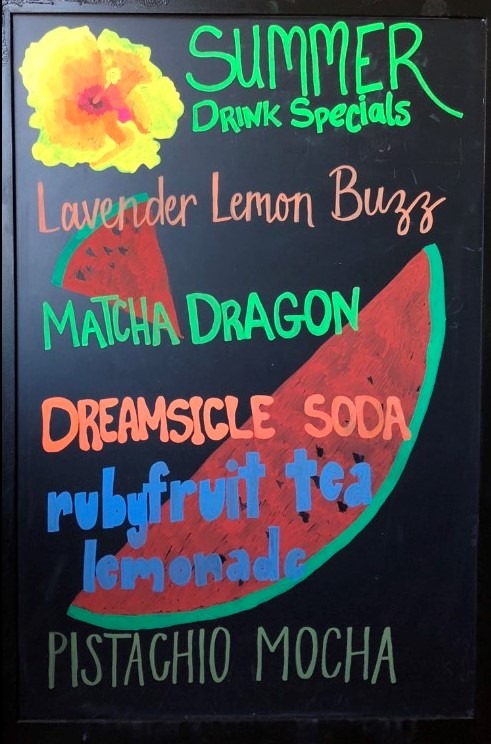 SUMMER
DRINK Specials
Lavender Lemon Buzz
MATCHA DRAGON
DREAMSICLE SODA
rubyfruit tea
lemonade
PISTACHIO MOCHA